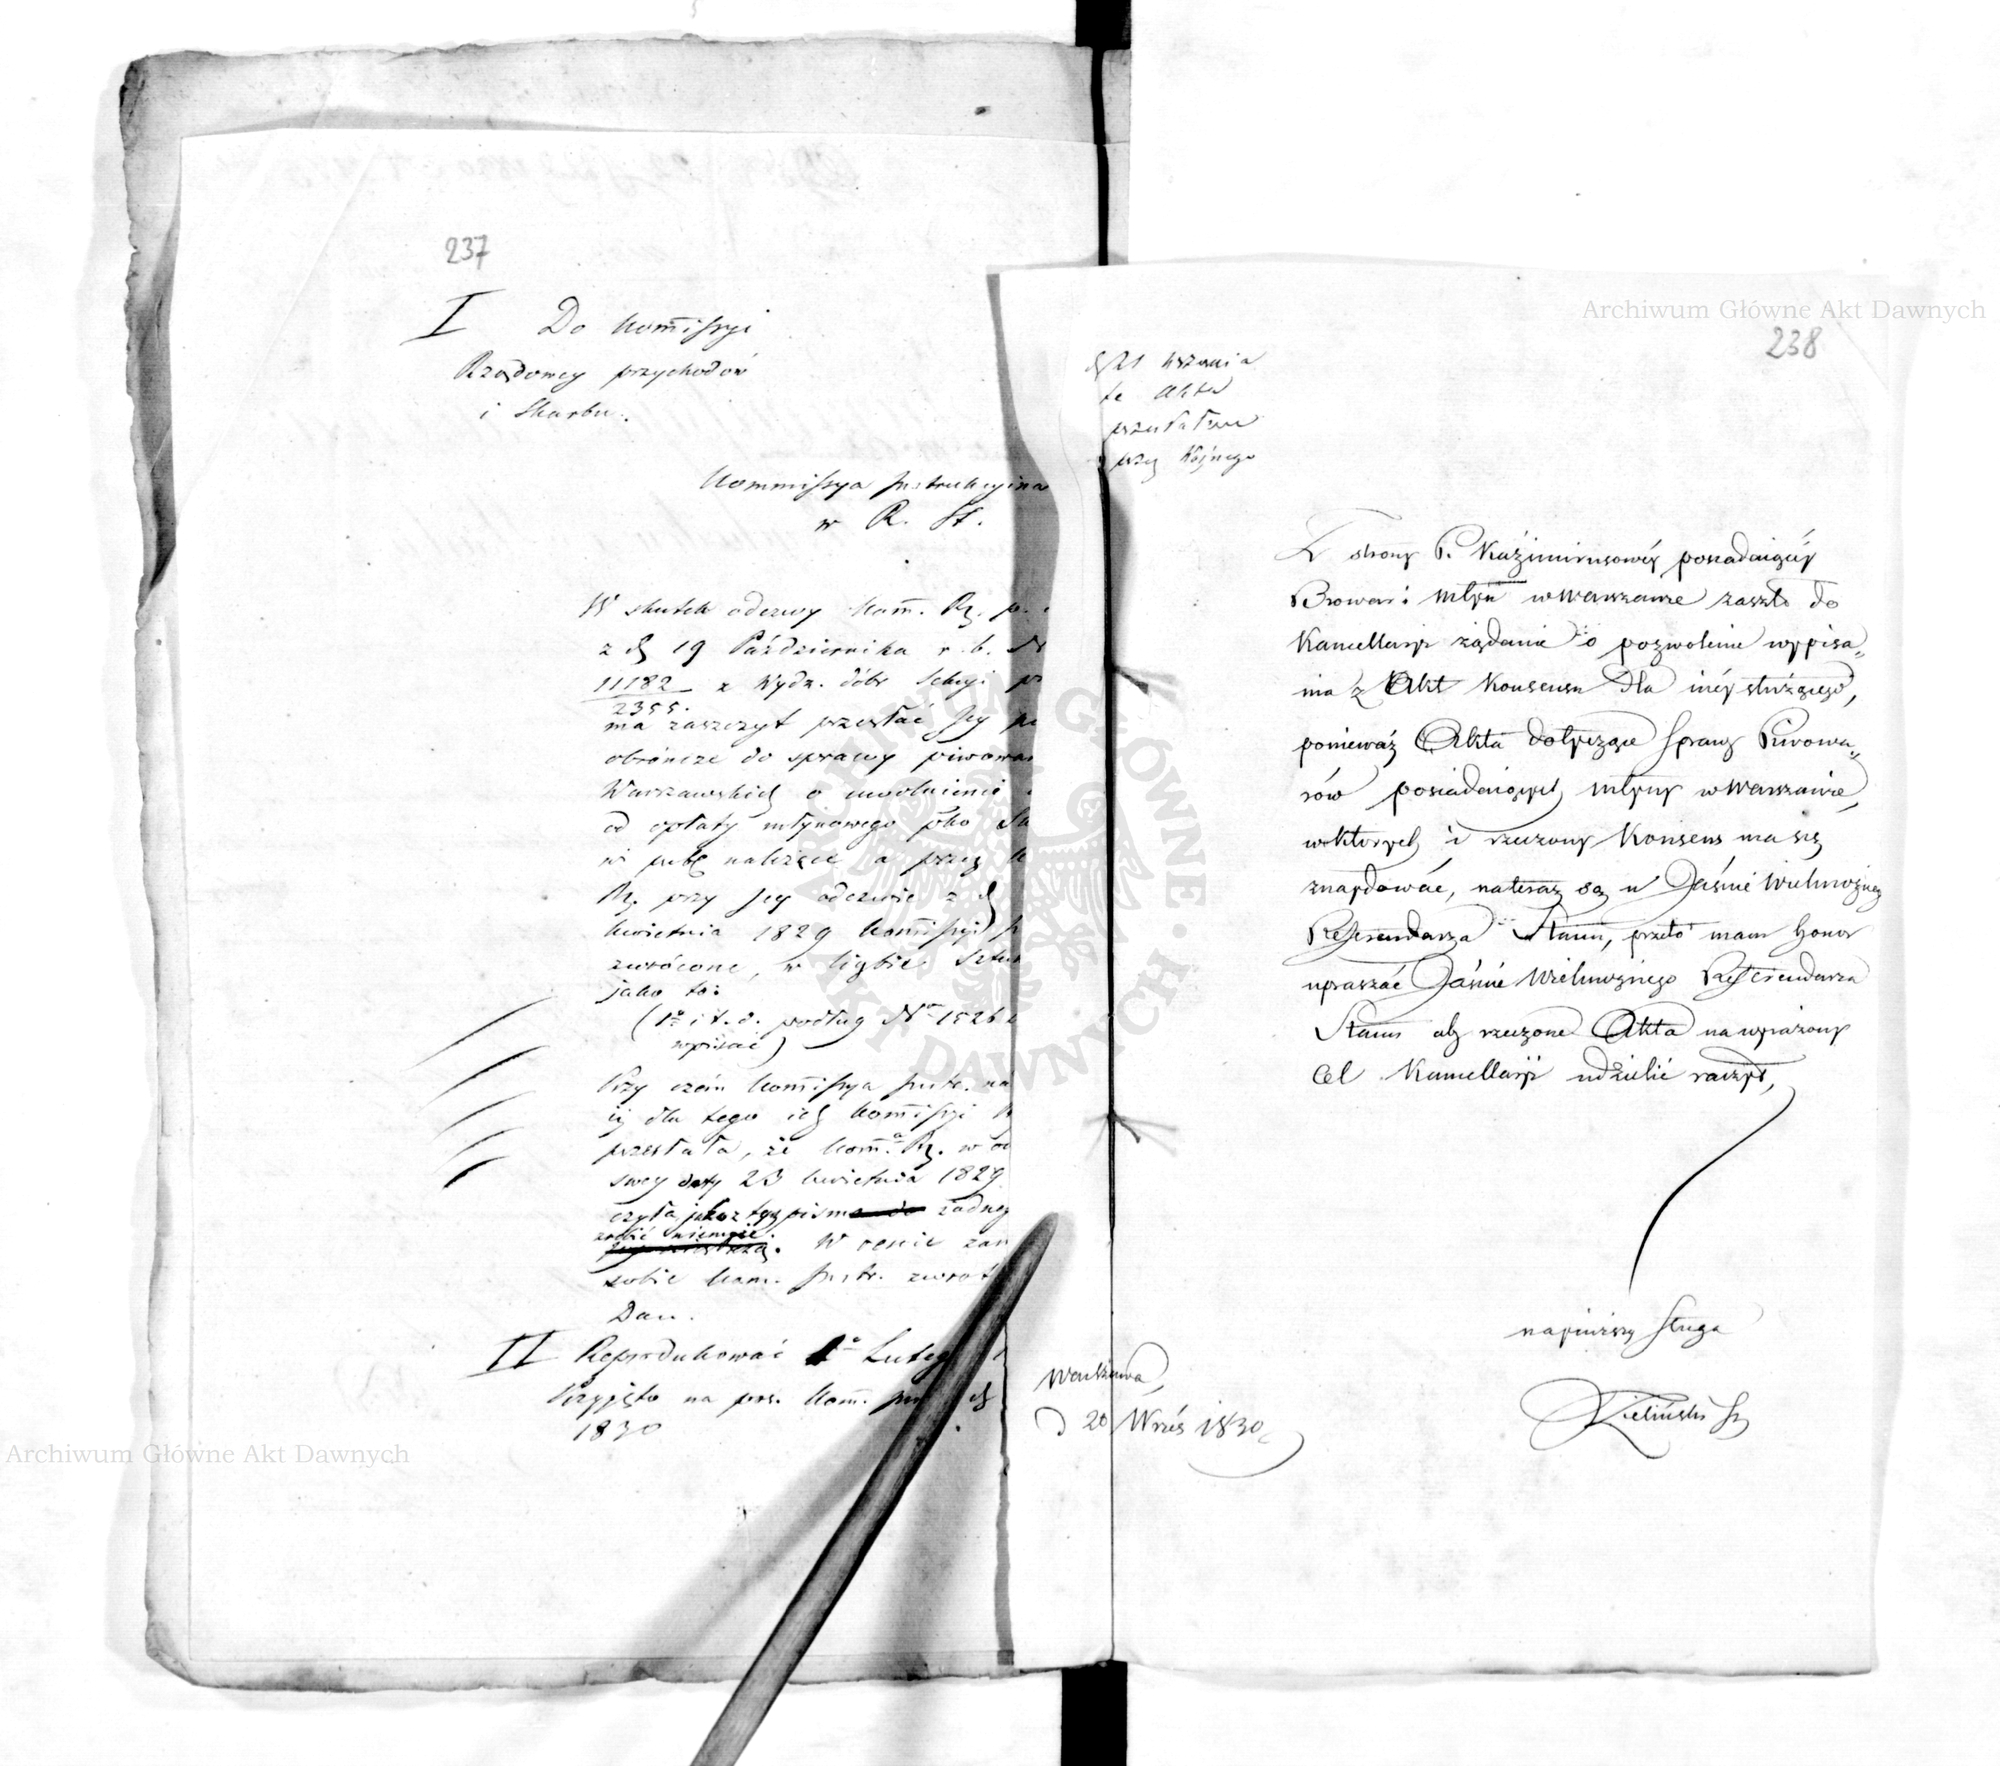 237
I Do Kom̅issyi
Rządowey przychodów
i Skarbu.
Kommissya Instrukcyina
w R. St.
W skutek odezwy Kom̅. Rz. p.
z d 19 Października r. b. N
11182 z Wydz. dóbr Sekcyi
2355.
ma zaszczyt przesłać Jey
obrończe do sprawy piwowar
Warszawskich o uwolnienie
od opłaty młynowego
należące a przez K
Rz. przy Jey odezwie z d
kwietnia 1829 Kom̅issyi
zwrócone, w liczbie Sztuk
jako to:
(1o i t. d. podług No 1526
wpisać)
Przy czém Kom̅issya Instr.
iż dla tego ich Kom̅issyi
przesłała, że Kom̅a Rz. w
swey daty 23 kwietnia 1829
żadneg
zrobić niemoże.
W cenie
sobie Kom. Instr. zwrot
Dan.
II Reprodukować 1o Luteg
Przyjęto na pos. Kom. d
1830
238
d 21 Września
te Akta
przesłałem
przez Woźnego
Z strony P. Kaźimirusowéy posiadaiącéy
Browar i Młyn w Warszawie zaszło do
Kancellaryi żądanie o pozwolenie wypisa„
nia z Akt Konsensu dla niéy służącego,
ponieważ Akta dotyczące sprawy Piwowa„
rów posiadaiących młyny w Warszawie,
w których i rzeczony Konsens ma się
znaydować, nateraz są u Jaśnie Wielmożnego
Referendarza Stanu, przeto mam honor
upraszać Jaśnie Wielmożnego Referendarza
Stanu aby rzeczone Akta na wyrażony
Cel Kancellaryi udzielić raczył,
nayniższy Sługa
Zieliński
Warszawa,
d 20 Wrześ 1830
Archiwum Główne Akt Dawnych
Archiwum Główne Akt Dawnych
ARCHIWUM GŁÓWNE AKT DAWNYCH